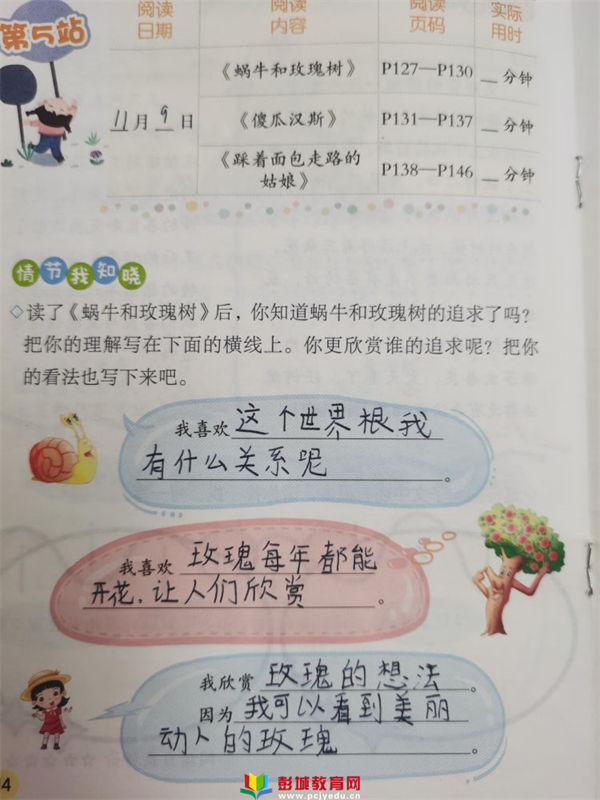 第5站
阅读日期 阅读内容 阅读页码 实际用时
《蜗牛和玫瑰树》 P127—P130 __分钟
11月9日 《傻瓜汉斯》 P131—P137 __分钟
《踩着面包走路的姑娘》 P138—P146 __分钟
情节我知晓
◇读了《蜗牛和玫瑰树》后，你知道蜗牛和玫瑰树的追求了吗？
把你的理解写在下面的横线上。你更欣赏谁的追求呢？把你
的看法也写下来吧。
我喜欢这个世界根我
有什么关系呢。
我喜欢 玫瑰每年都能
开花，让人们欣赏。
我欣赏 玫瑰的想法。
因为 我可以看到美丽
动人的玫瑰。
4
彭城教育网
www.pcjyedu.cn